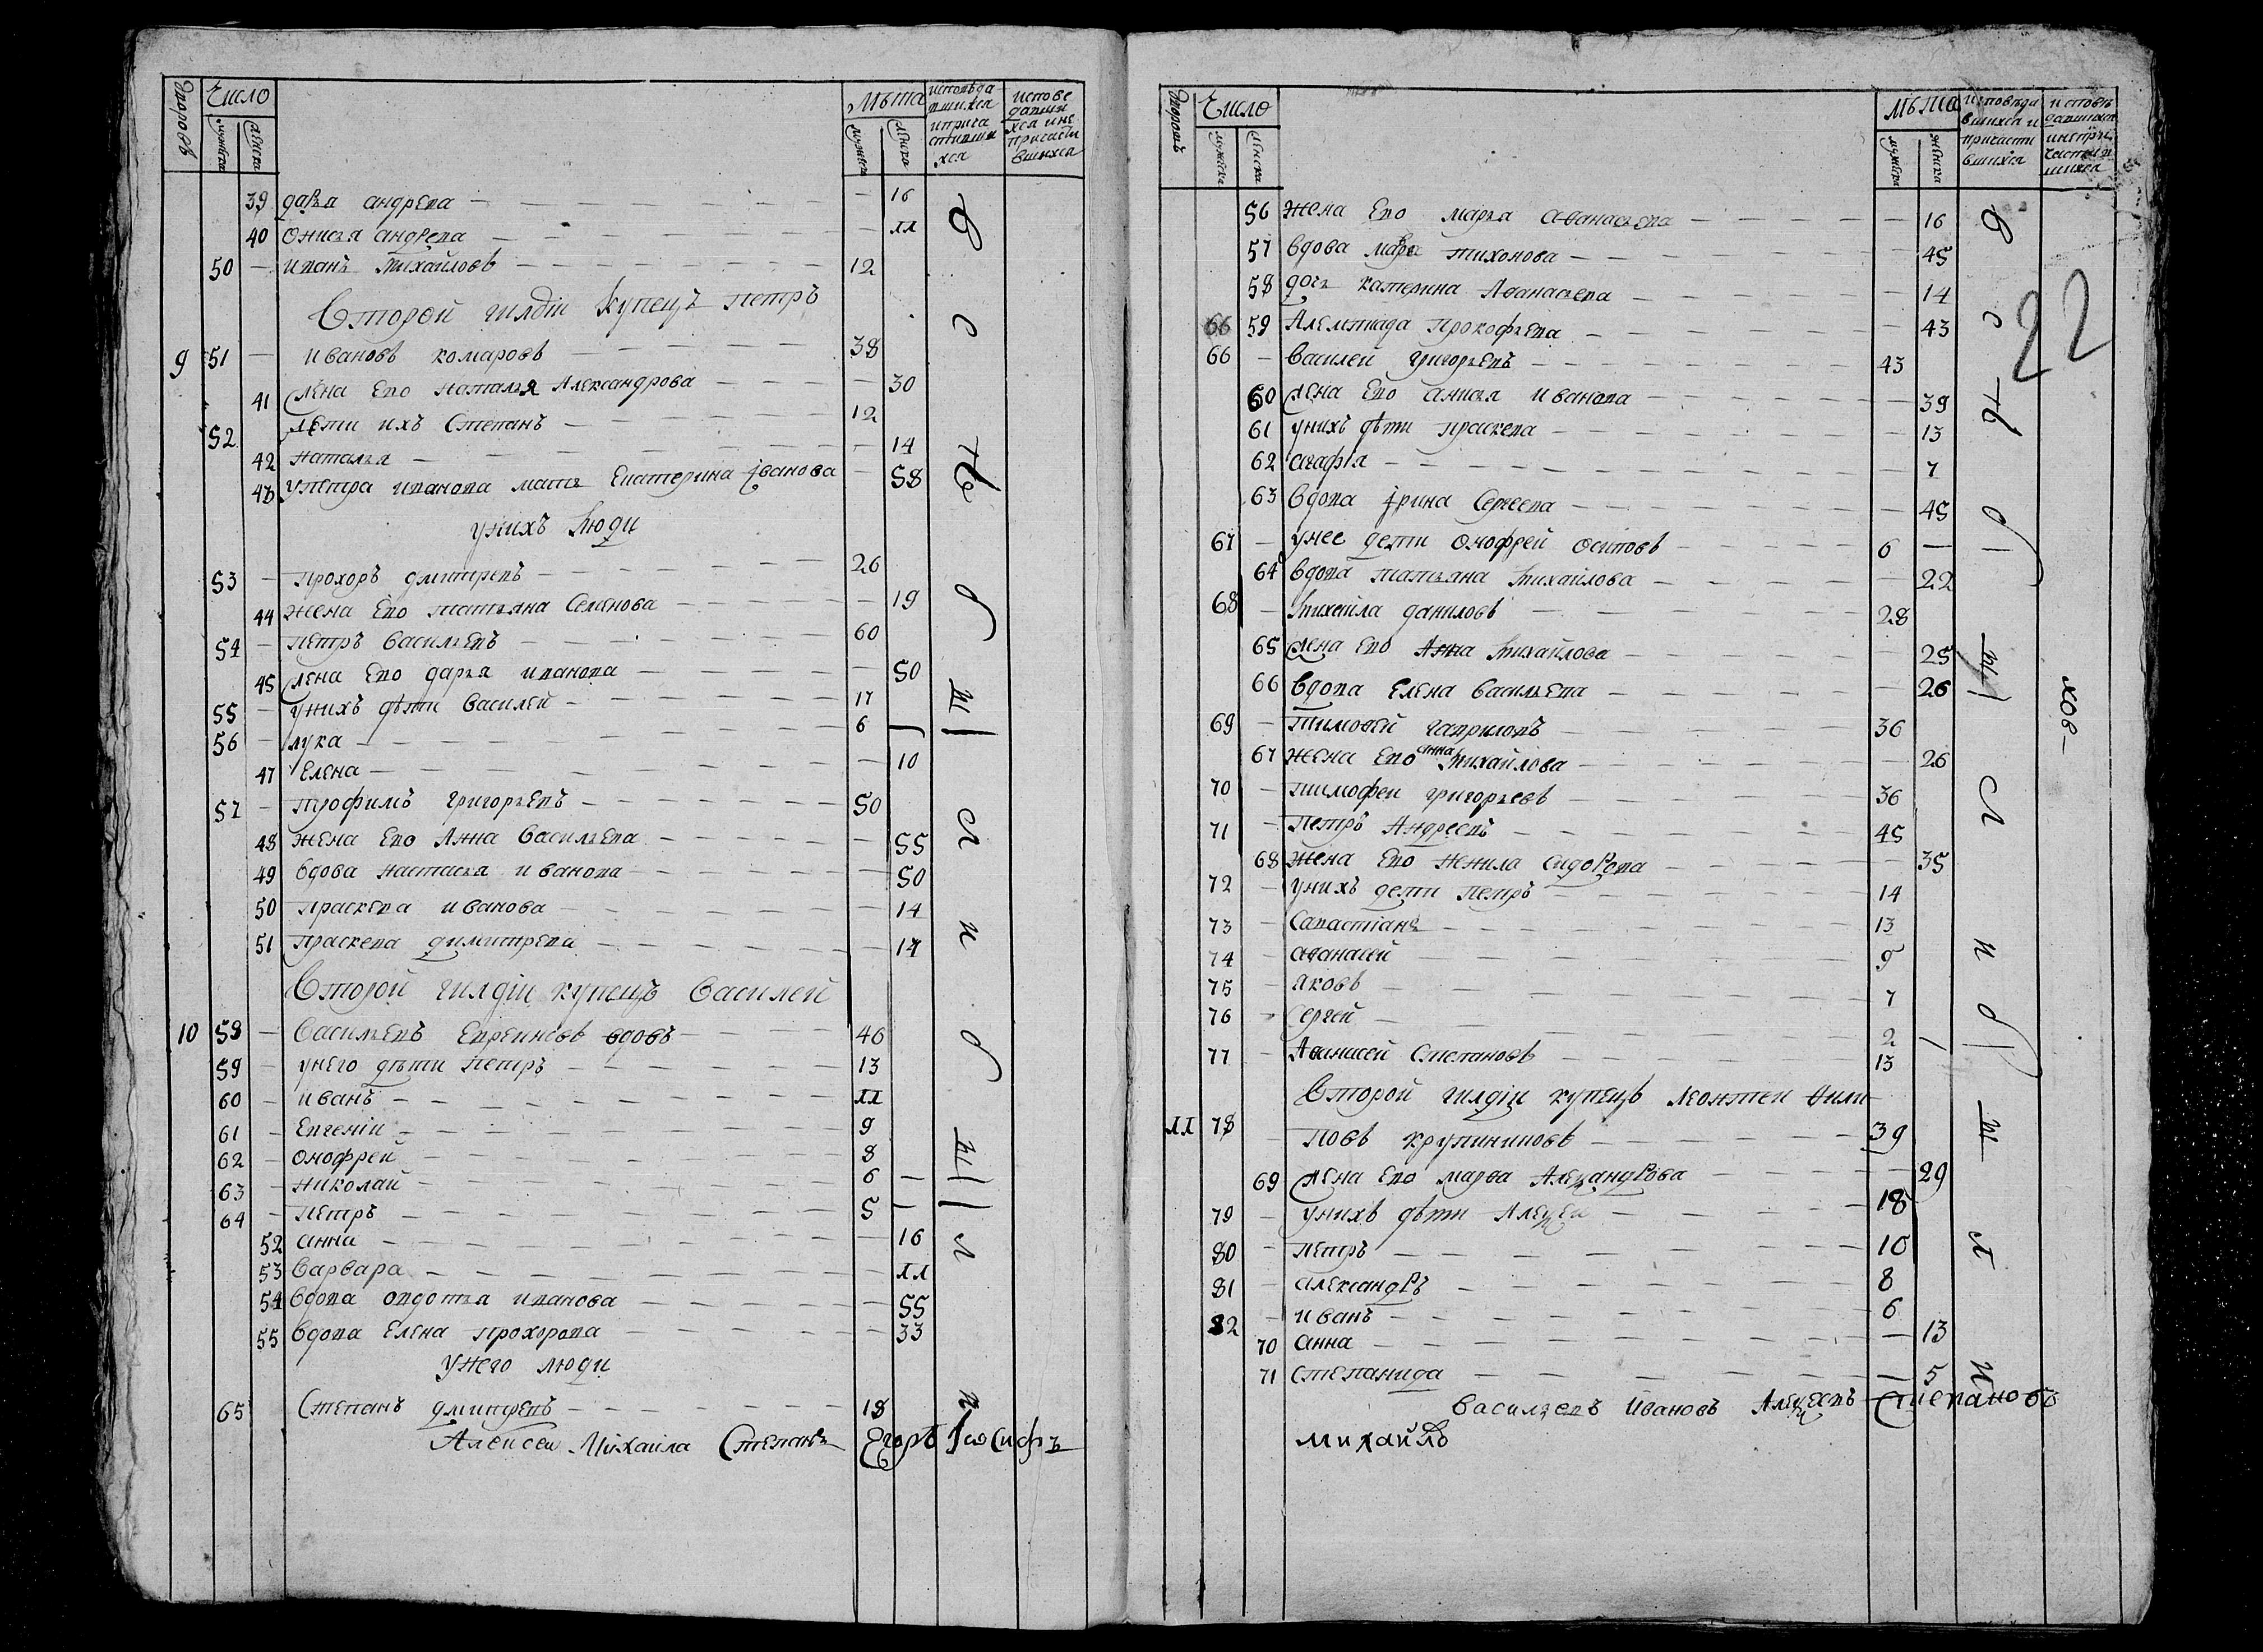 дворовъ Число мужеска женска Лѣта мужеска женска исповѣдавшихся и причастившихся исповедавшихся и не причастившихся
39 дарья андрева — 16
40 Онисья андрева — 11
50 — иванъ Михайловъ 12
Второй гилдіи купецъ петръ
9 51 — ивановъ комаровъ 38
41 Жена Его наталья Александрова — 30
52 дѣти ихъ Степанъ 12
42 наталья — 14
43 У петра иванова мать Екатерина Іванова — 58
у нихъ люди
53 — прохоръ дмитревъ 26
44 жена Его татьяна Семенова — 19
54 — петръ васильевъ 60
45 Жена Его дарья иванова — 50
55 — у нихъ дѣти василей 17
56 — лука 6
47 Елена — 10
57 — трофимъ григорьевъ 50
48 жена Его Анна васильева — 55
49 вдова настасья иванова — 50
50 праскева иванова — 14
51 праскева димитрева — 14
Второй гилдіи купецъ василей
10 58 — васильевъ Евреиновъ вдовъ 46
59 — у него дѣти петръ 13
60 — иванъ 11
61 — Евгеніи 9
62 — онофреи 8
63 — николай 6 —
64 — петръ 5 —
52 анна — 16
53 варвара — 11
54 вдова овдотья иванова — 55
55 вдова Елена прохорова — 33
У него люди
65 Степанъ дмитревъ 18
Алексеи Михаила Степанъ Егоръ Іѡсифъ
Вс тѣ были
были
дворовъ Число мужеска женска лѣта мужеска женска исповѣдавшихся и причастившихся исповѣдавшихся и не причастившихся
22
56 жена Его марья Аѳанасьева — 16
57 вдова марѳа тихонова — 45
58 дочь катерина Аѳанасьева — 14
66 59 Алемпіада прокофьева — 43
66 — василей григорьевъ 43
60 Жена Его анисья иванова — 39
61 у нихъ дѣти праскева — 13
62 агафія — 7
63 вдова Ірина Сергеева — 45
67 — у нее дети онофрей осиповъ 6 —
64 вдова татьяна Михайлова — 22
68 — Михаила даниловъ 28
65 Жена Его Анна Михайлова — 25
66 вдова Елена васильева — 26
69 — тимоѳей гавриловъ 36
67 жена Его анна Михайлова — 26
70 — тимофеи григорьевъ 36
71 — петръ Андреевъ 45
68 жена Его ненила сидорова — 35
72 — у нихъ дети петръ 14
73 — Савастіанъ 13
74 — аѳанасей 9
75 — яковъ 7
76 — сергей 2
77 — Аѳанасей Степановъ 13
Второй гилдіи купецъ леонтеи Фили
11 78 — повъ крупениковъ 39
69 Жена Его марѳа Алеѯандрова — 29
79 — у нихъ дѣти Алеѯеи 18
80 — петръ 10
81 — александръ 8
82 — иванъ 6
70 анна — 13
71 степанида — 5
васильевъ Ивановъ Алеѯеевъ Степановъ
михаилъ
Вс тѣ были
были
хов—